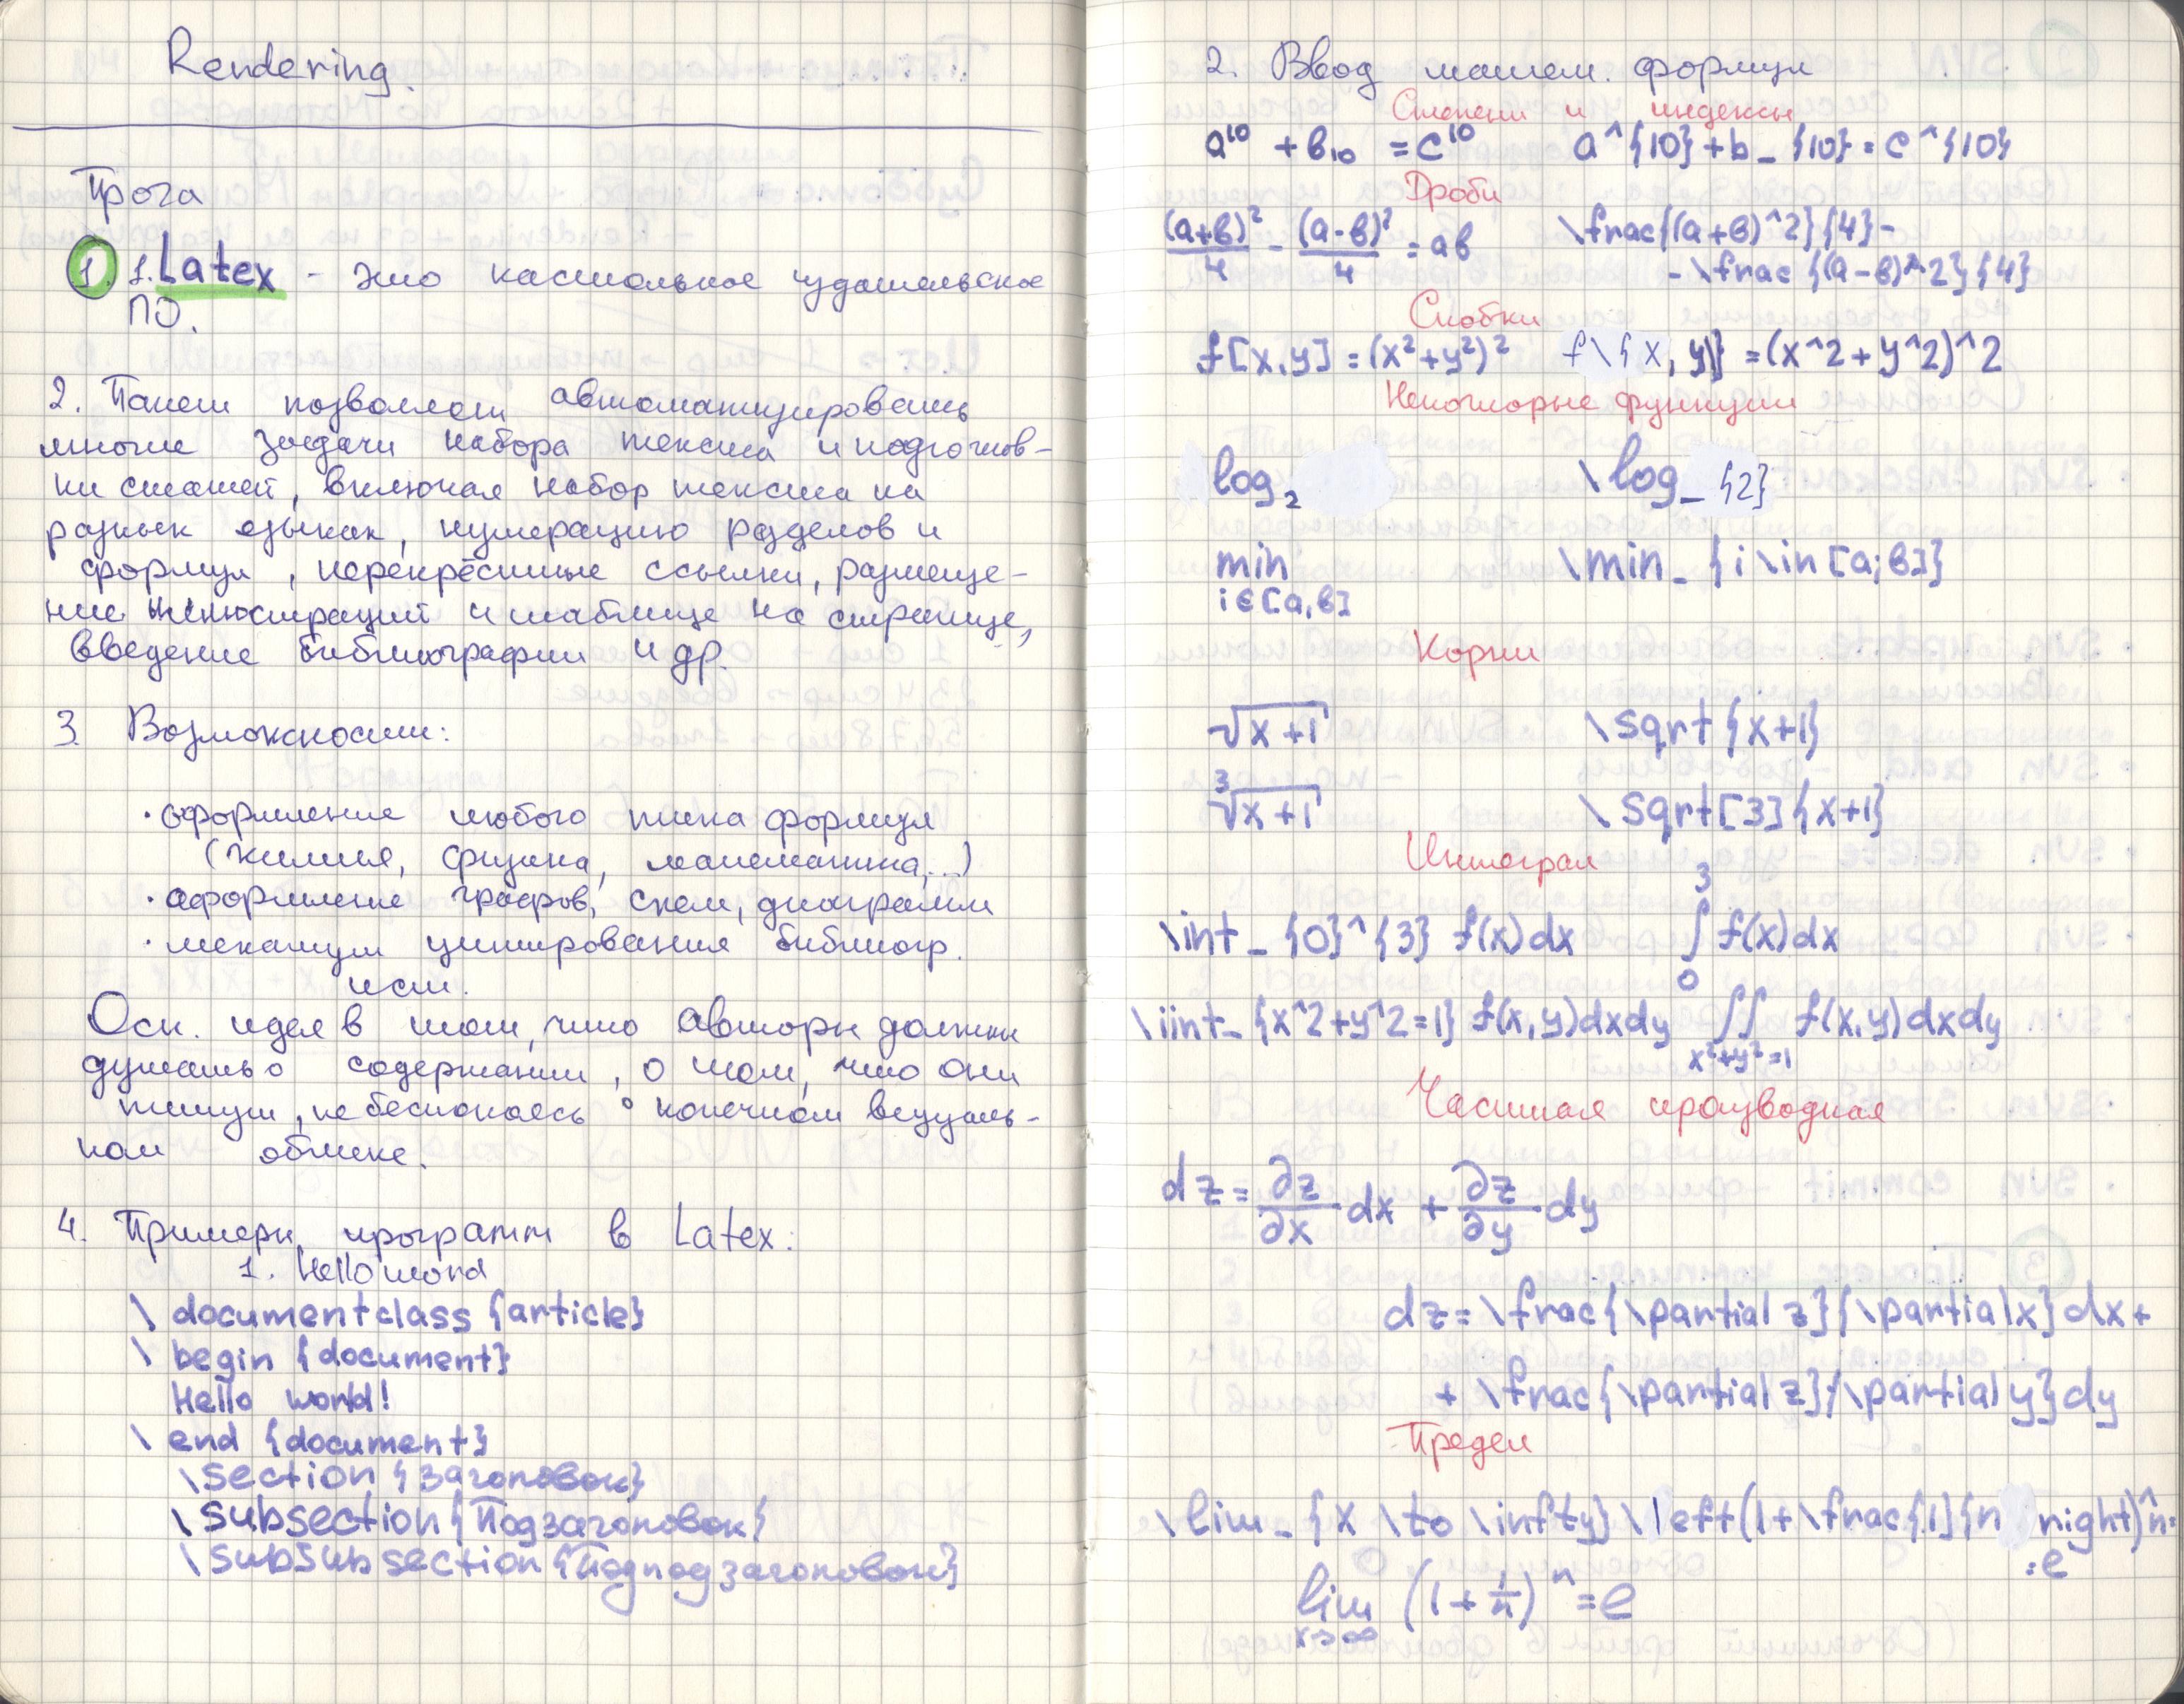 Rendering.
Прога
1. 1. Latex - это настольное издательское
ПО.
2. Пакет позволяет автоматизировать
многие задачи набора текста и подготов-
ки статей, включая набор текста на
разных языках, нумерацию разделов и
формул, перекрёстные ссылки, размеще-
ние иллюстраций и таблице на странице,
введение библиографии и др.
3. Возможности:
· оформление любого типа формул
(химия, физика, математика,...)
· оформление графов, схем, диаграмм
· механизм цитирования библиогр.
ист.
Осн. идея в том, что авторы должны
думать о содержании, о том, что они
пишут, не беспокоясь о конечном визуаль-
ном облике.
4. Примеры программ в Latex:
1. Hello word
\ documentclass {article}
\ begin {document}
Hello world!
\ end {document}
\section {Заголовок}
\subsection{Подзаголовок}
\subsubsection{Подподзаголовок}
2. Ввод матем. формул
Степени и индексы
a¹⁰ + b₁₀ = c¹⁰ a^{10}+b_{10}=c^{10}
Дроби
(a+b)²/4 - (a-b)²/4 = ab \frac{(a+b)^2}{4}-
-\frac{(a-b)^2}{4}
Скобки
f[x,y]=(x²+y²)² f\{x,y\}=(x^2+y^2)^2
Некоторые функции
log₂ \log_{2}
min \min_{i\in[a;b]}
i∈[a,b]
Корни
√x+1 \sqrt{x+1}
³√x+1 \sqrt[3]{x+1}
Интеграл
\int_{0}^{3} f(x)dx ∫₀³ f(x)dx
\iint_{x^2+y^2=1} f(x,y)dxdy ∬ f(x,y)dxdy
x²+y²=1
Частная производная
dz = ∂z/∂x dx + ∂z/∂y dy
dz=\frac{\partial z}{\partial x}dx+
+ \frac{\partial z}{\partial y}dy
Предел
\lim_{x \to \infty}\left(1+\frac{1}{n \right)^n=
=e
lim (1+1/n)ⁿ=e
x→∞